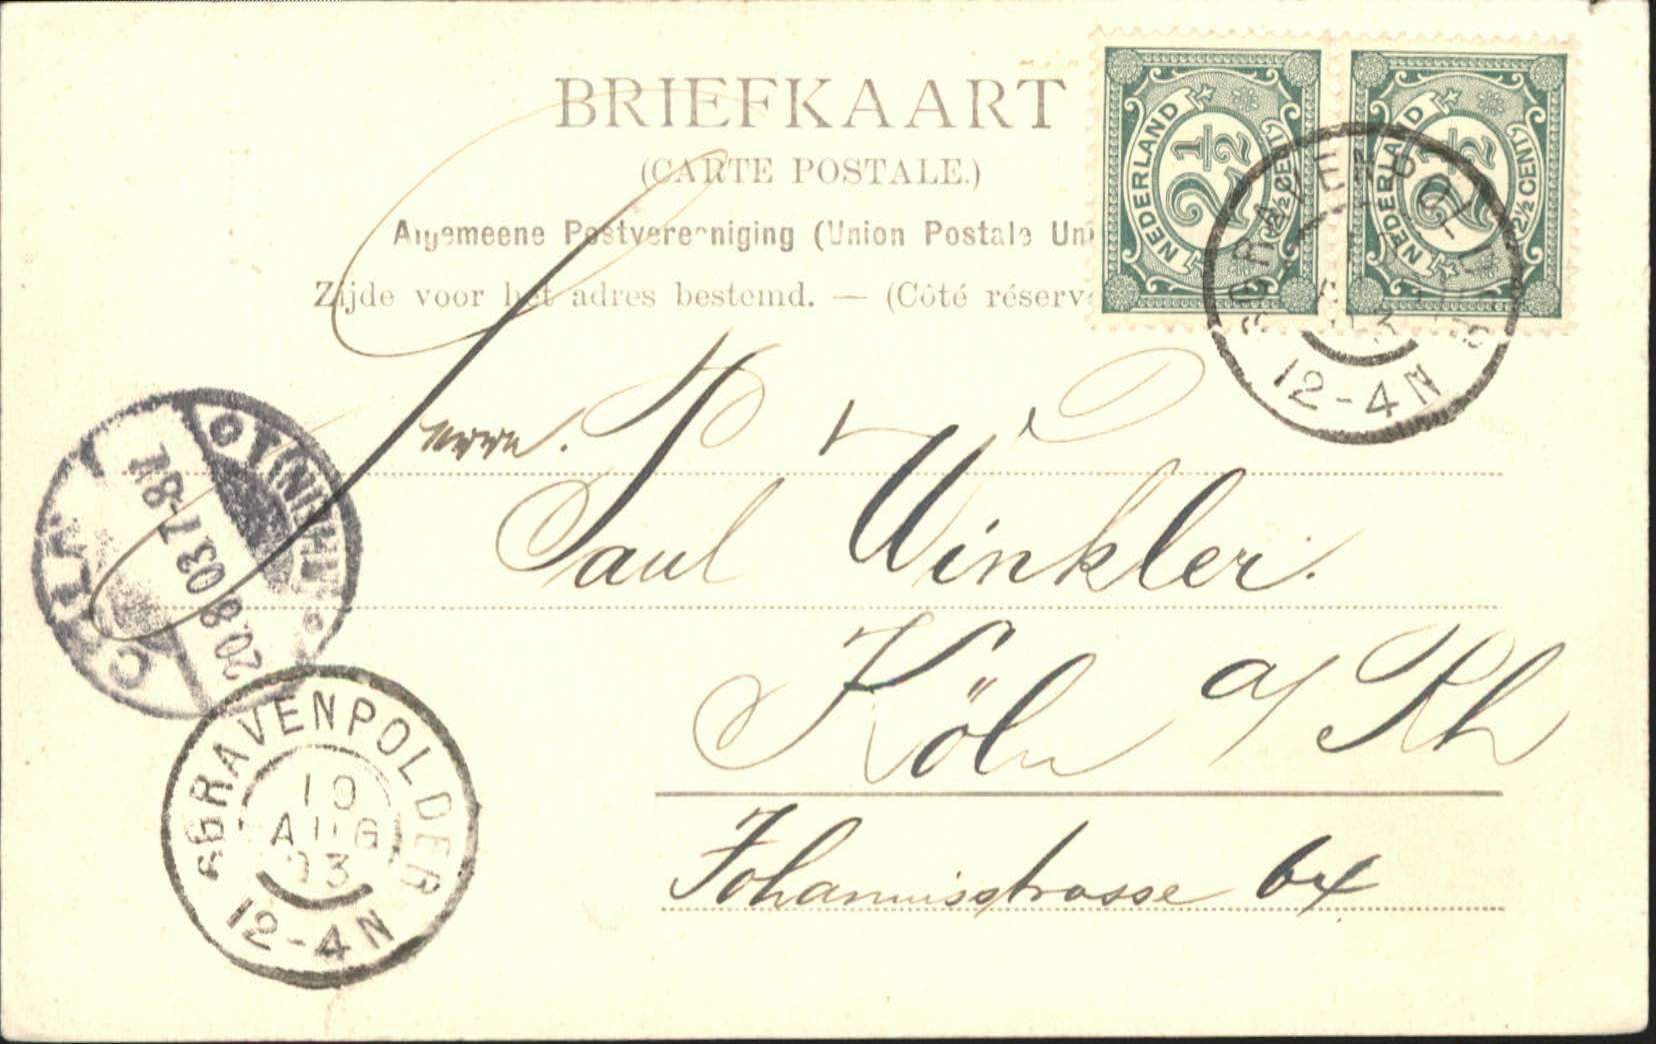 BRIEFKAART
(CARTE POSTALE.)
Algemeene Postvereeniging (Union Postale Uni
Zijde voor het adres bestemd. — (Côté réserv
NEDERLAND
2½
2½ CENT
NEDERLAND
2½
2½ CENT
'SGRAVENPOLDER
12-4N
Herrn.
Paul Winkler.
Köln a/ Rh
Johannisstrasse 64
CÖLN
20.8.03.7-8V
'SGRAVENPOLDER
AUG
03
12-4N